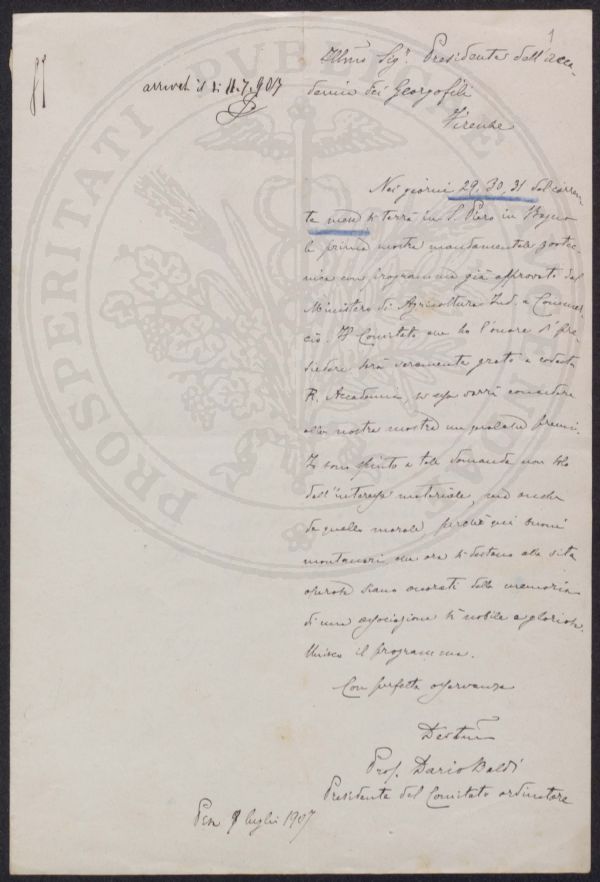 1
Illmo Sig.r Presidente dell'Acca-
demia dei Georgofili
Firenze
arrivata il dì 11.7.907
Nei giorni 29, 30, 31 del corren
te mese si terrà in S. Piero in Bagno
la prima mostra mandamentale zootec-
nica con programma già approvato dal
Ministero di Agricoltura Ind. e Commer-
cio. Il Comitato che ho l'onore di pre-
siedere sarà veramente grato a codesta
R. Accademia, se essa vorrà concedere
alla nostra mostra un qualche premio.
Io sono spinto a tale domanda non solo
dall'interesse materiale, ma anche
da quello morale perchè quei buoni
montanari che ora si destano alla vita
operosa siano onorati della memoria
di una associazione sì nobile e gloriosa.
Unisco il programma.
Con perfetta osservanza
Prof. Dario Baldi
Presidente del Comitato ordinatore
luglio 1907
PROSPERITATI PUBLICAE